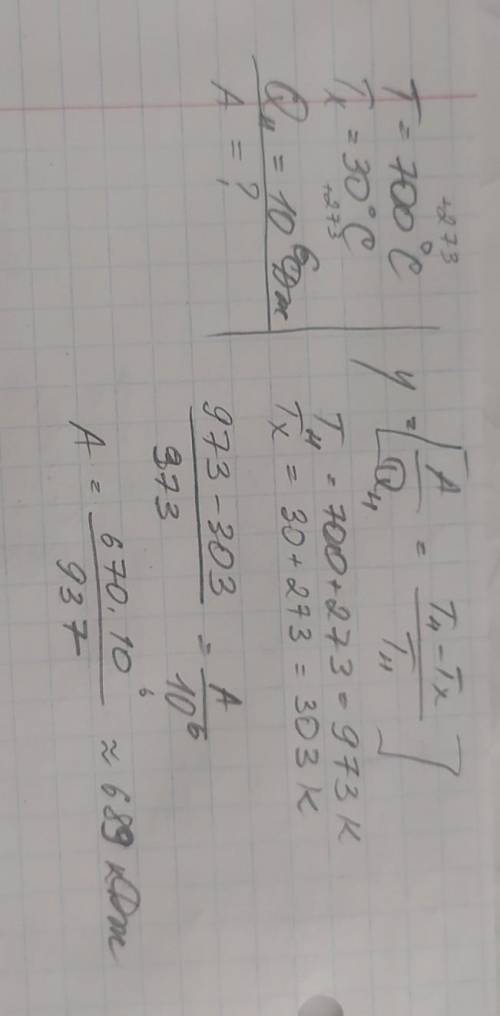 T = 700°C +273
Tx = 30°C +273
Qн = 10⁶ Дж
A = ?
η = [A/Qн = (Tн - Tx)/Tн]
Tн = 700 + 273 = 973 К
Tx = 30 + 273 = 303 К
(973 - 303)/973 = A/10⁶
A = (670 · 10⁶)/937 ≈ 689 кДж